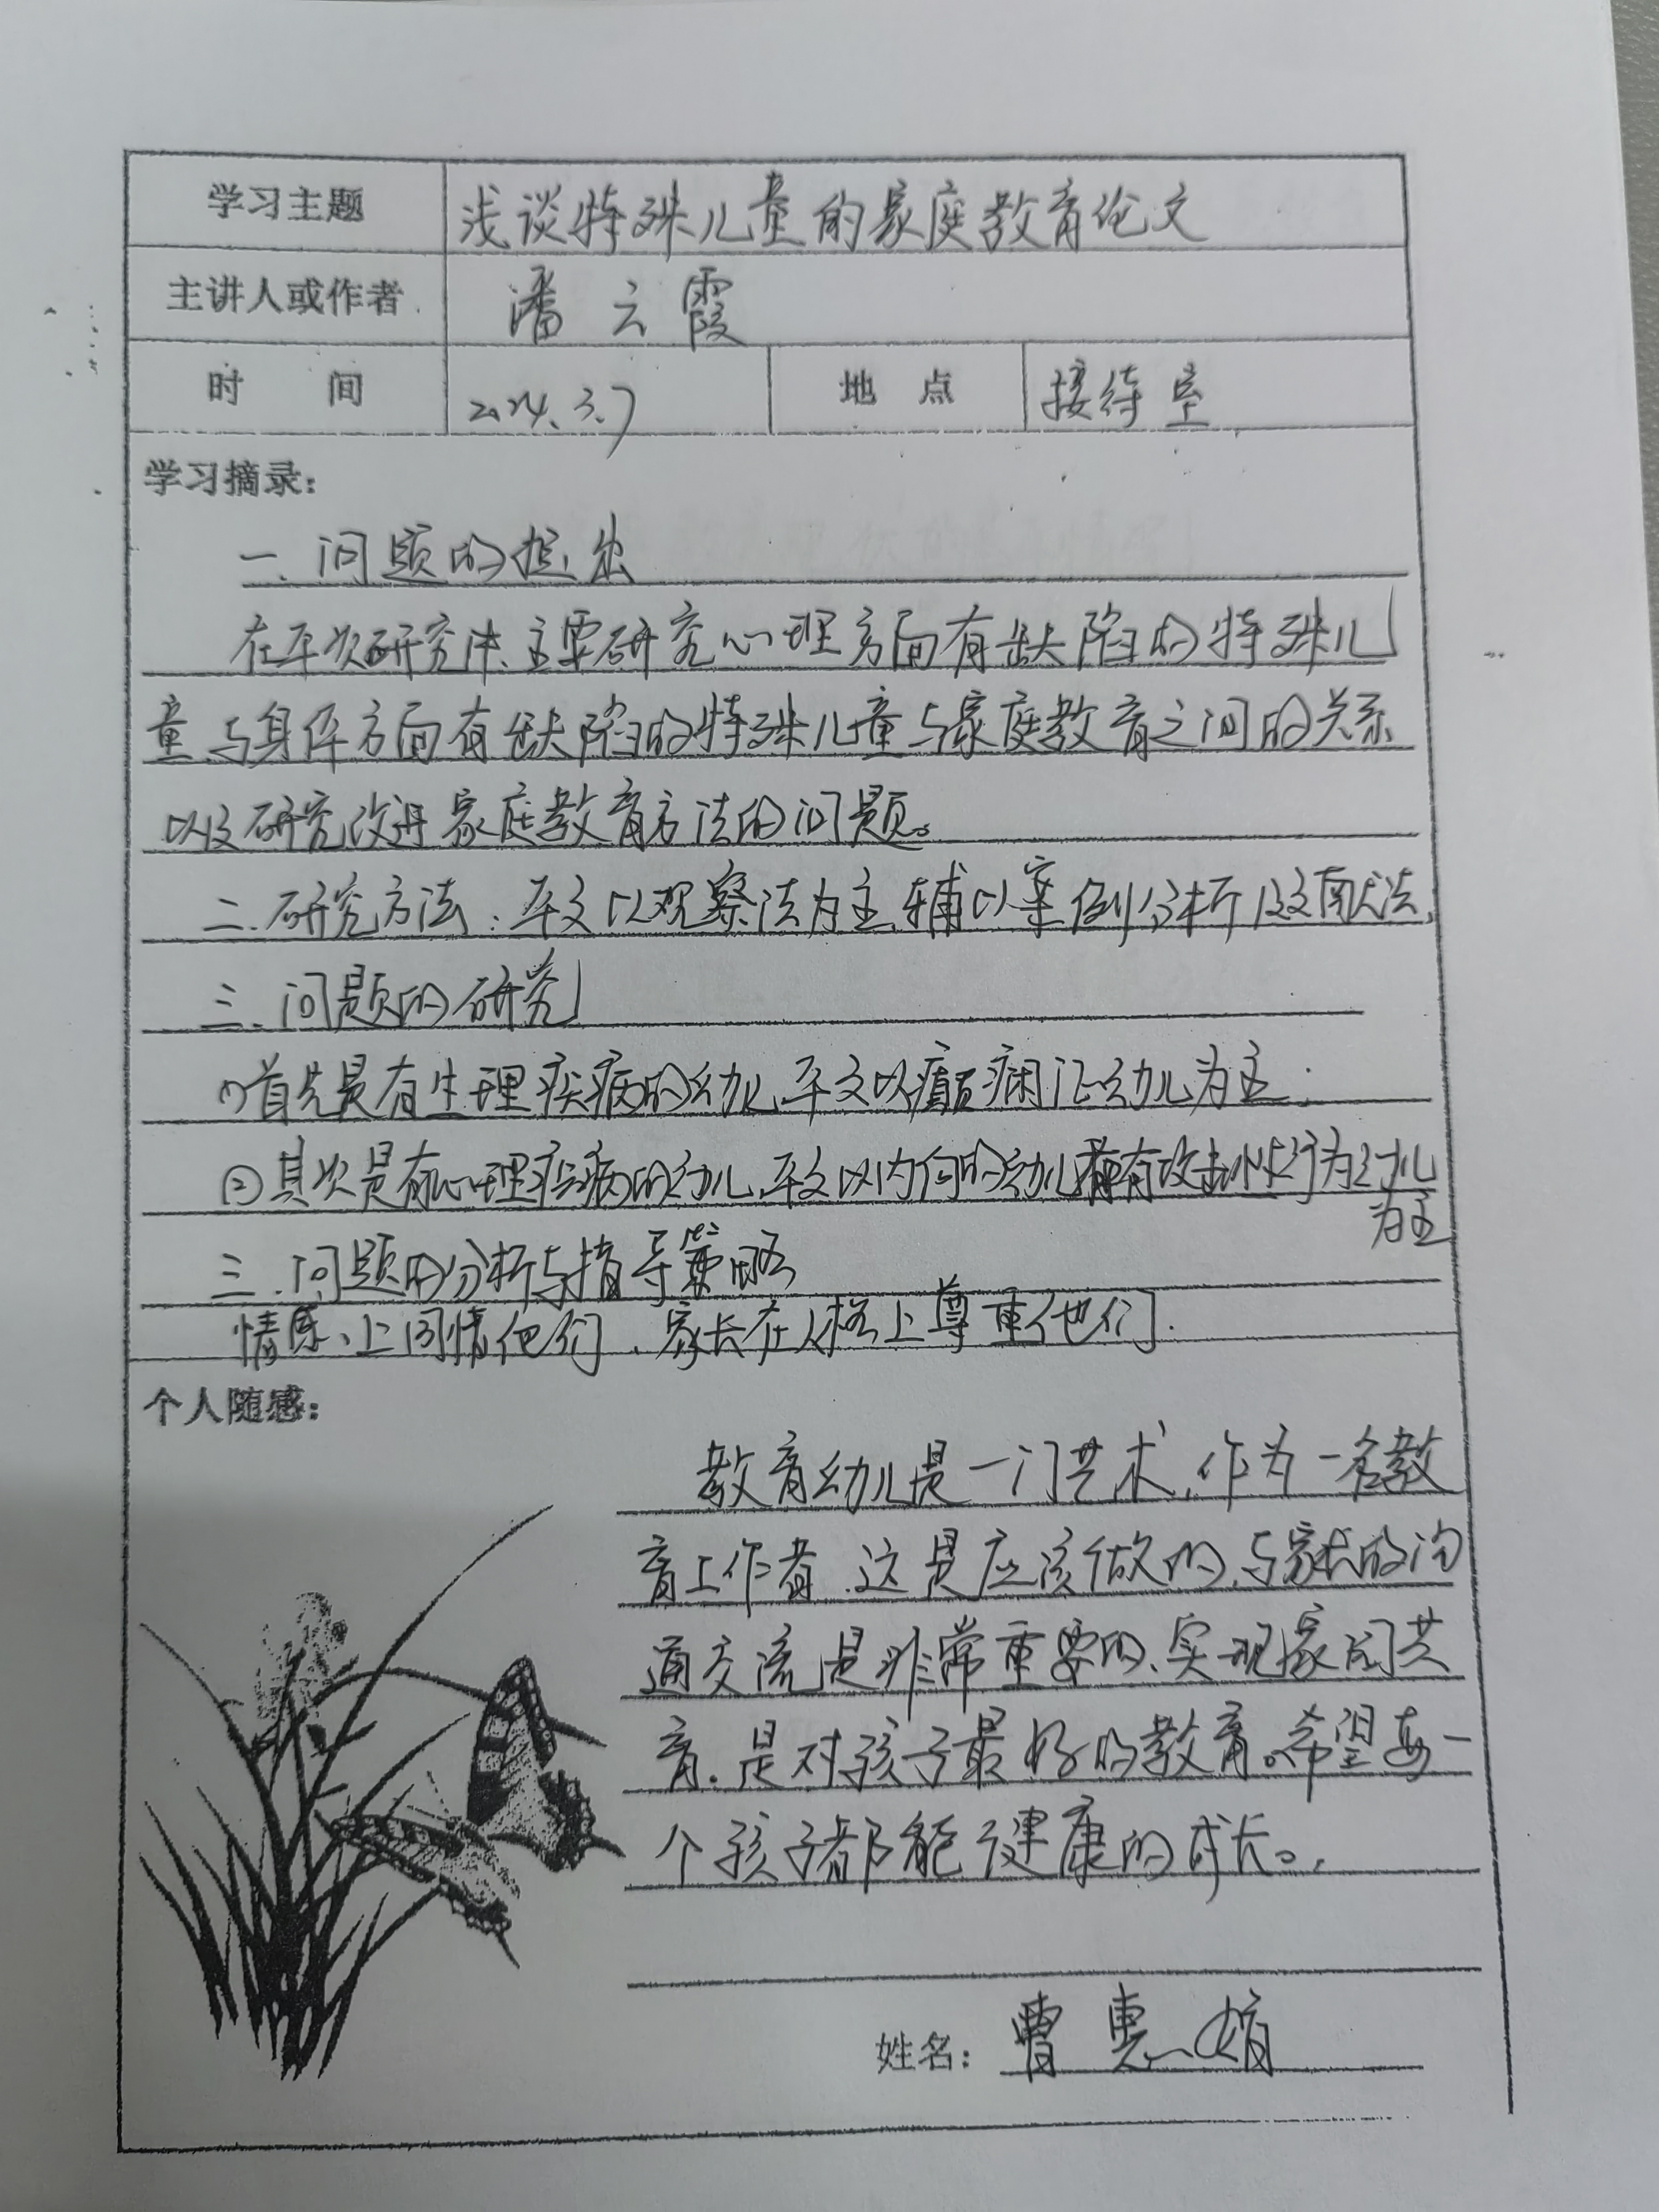 学习主题 浅谈特殊儿童的家庭教育论文
主讲人或作者 潘云霞
时 间 2024.3.7 地 点 接待室
学习摘录：
一、问题的提出
在本次研究中、主要研究心理方面有缺陷的特殊儿
童、与身体方面有缺陷的特殊儿童与家庭教育之间的关系
以及研究改进家庭教育方法的问题。
二、研究方法：本文以观察法为主、辅以案例分析及文献法、
三、问题的研究
(1)首先是有生理疾病的幼儿、本文以癫痫症幼儿为主；
②其次是有心理疾病的幼儿、本文以内向的幼儿和有攻击性行为幼儿
为主
三、问题的分析与指导策略
情感、上同情他们、家长在人格上尊重他们.
个人随感：
教育幼儿是一门艺术，作为一名教
育工作者、这是应该做的、与家长的沟
通交流是非常重要的、实现家园共
育、是对孩子最好的教育。希望每一
个孩子都能健康的成长。
姓名： 曹惠娟